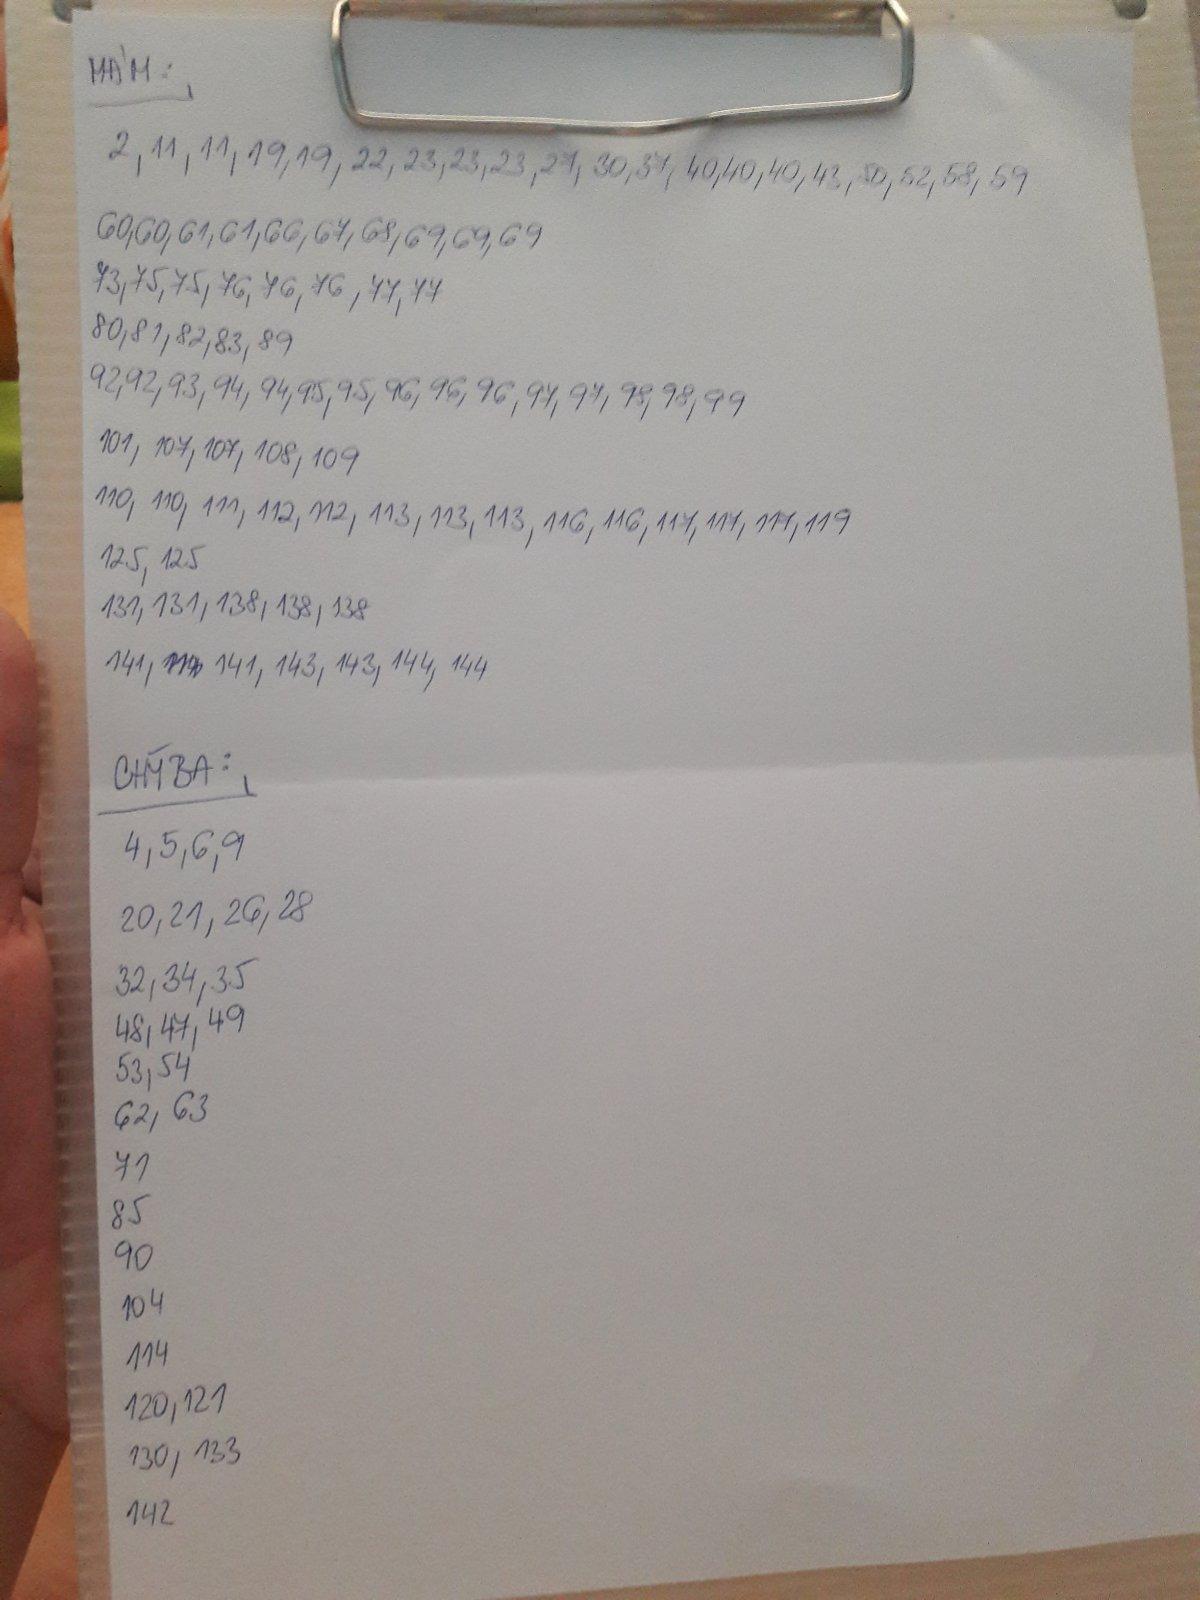 MÁM:
2, 11, 11, 19, 19, 22, 23, 23, 23, 27, 30, 37, 40, 40, 40, 43, 50, 52, 58, 59
60, 60, 61, 61, 66, 67, 68, 69, 69, 69
73, 75, 75, 76, 76, 76, 77, 77
80, 81, 82, 83, 89
92, 92, 93, 94, 94, 95, 95, 96, 96, 96, 97, 97, 98, 98, 99
101, 107, 107, 108, 109
110, 110, 111, 112, 112, 113, 113, 113, 116, 116, 117, 117, 117, 119
125, 125
131, 131, 138, 138, 138
141, 141, 143, 143, 144, 144
CHÝBA:
4, 5, 6, 9
20, 21, 26, 28
32, 34, 35
48, 47, 49
53, 54
62, 63
71
85
90
104
114
120, 121
130, 133
142